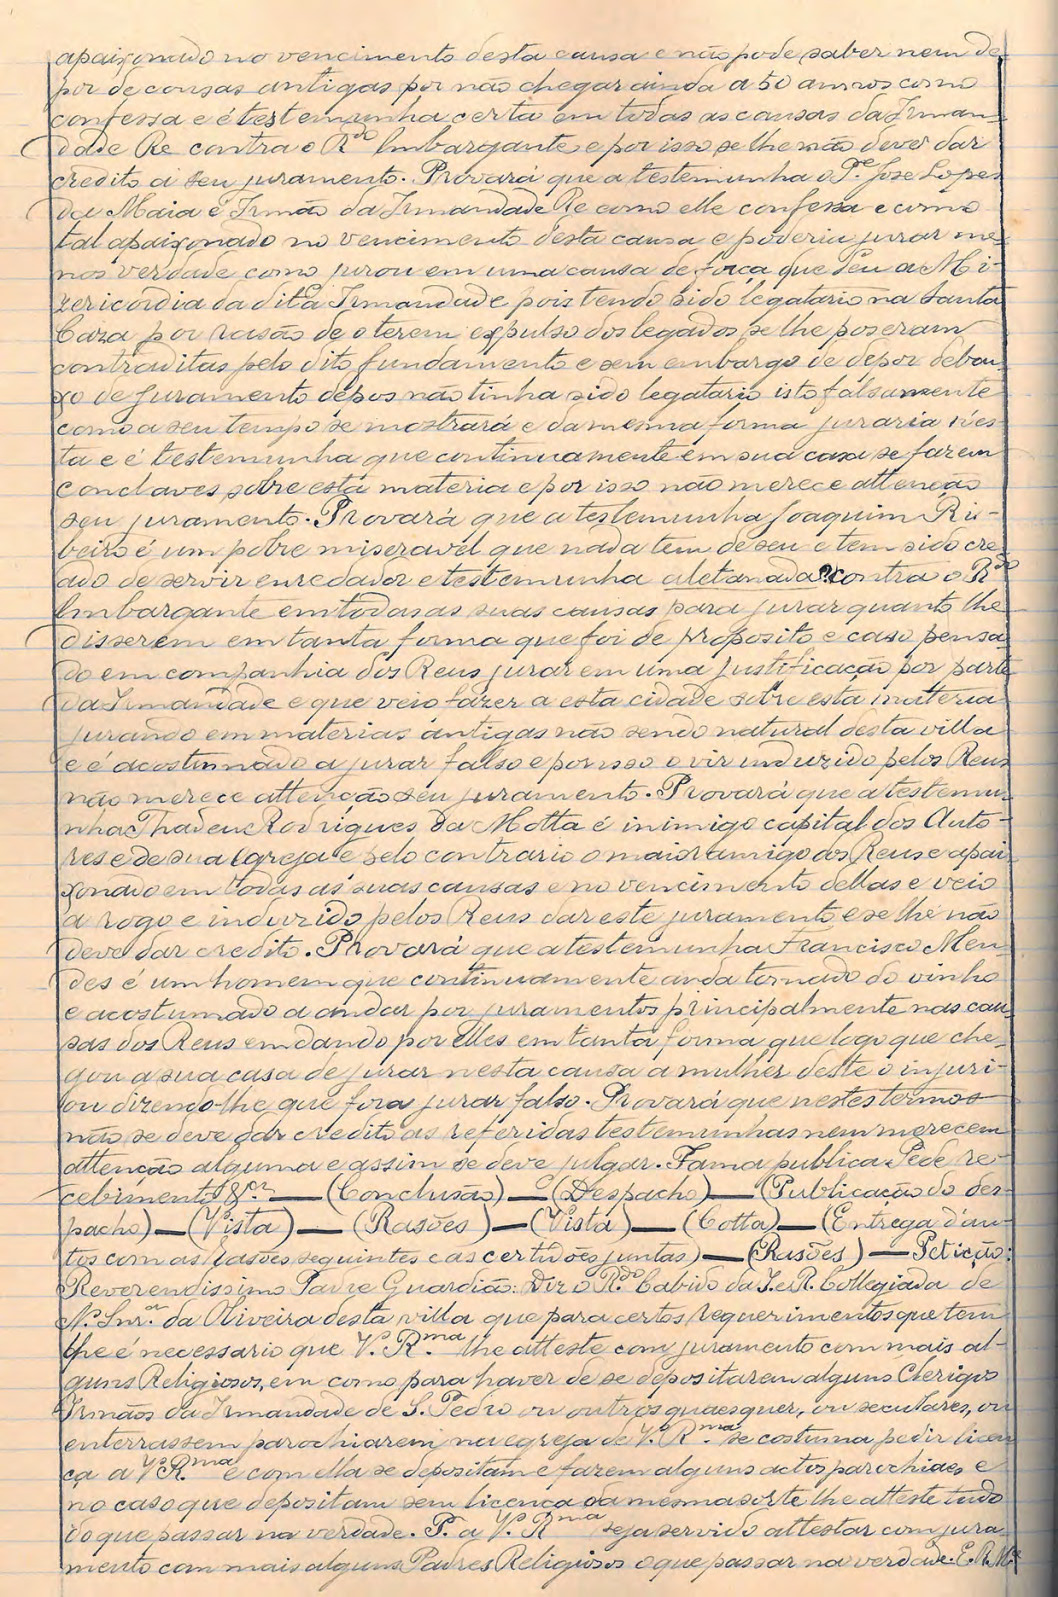 apaixonado no vencimento desta causa e não pode saber nem de-
por de cousas antigas por não chegar ainda a 50 annos como
confessa e é testemunha certa em todas as causas da Irman-
dade Re contra o R.do Embargante e por isso se lhe não dever dar
credito a seu juramento. Provará que a testemunha o P.e Jose Lopes
da Maia é Irmão da Irmandade Re como elle confessa e como
tal apaixonado no vencimento desta causa e poderia jurar me-
nos verdade como jurou em uma causa de força que deu a Mi-
zericordia da dita Irmandade pois tendo sido legatario na Santa
Caza por rasão de o terem expulso dos legados se lhe poseram
contraditas pelo dito fundamento e sem embargo de depor debai-
xo de juramento depos não tinha sido legatario isto falsamente
como a seu tempo se mostrará e da mesma forma juraria n'es-
ta e é testemunha que continuamente em sua casa se fazem
conclaves sobre esta materia e por isso não merece attenção
seu juramento. Provará que a testemunha Joaquim Ri-
beiro é um pobre miseravel que nada tem de seu e tem sido cre-
ado de servir enredador e testemunha aletanada? contra o R.do
Embargante em todas as suas causas para jurar quanto lhe
disserem em tanta forma que foi de proposito e caso pensa-
do em companhia dos Reus jurar em uma justificação por parte
da Irmandade e que veio fazer a esta cidade sobre esta materia
jurando em materias antigas não sendo natural desta villa
e é acostumado a jurar falso e por isso o vir induzido pelos Reus
não merece attenção seu juramento. Provará que a testemu-
nha Thadeu Rodrigues da Motta é inimigo capital dos Auto-
res e de sua Egreja e pelo contrario o maior amigo dos Reus e apai-
xonado em todas as suas causas e no vencimento dellas e veio
a rogo e induzido pelos Reus dar este juramento e se lhe não
deve dar credito. Provará que a testemunha Francisco Men-
des é um homem que continuamente anda tomado do vinho
e acostumado a andar por juramentos principalmente nas cau-
sas dos Reus em dando por elles em tanta forma que logo que che-
gou a sua casa de jurar nesta causa a mulher deste o injuri-
ou dizendo-lhe que fora jurar falso. Provará que nestes termos
não se deve dar credito as referidas testemunhas nem merecem
attenção alguma e assim se deve julgar. Fama publica. Pede re-
cebimento — (Conclusão) — (Despacho) — (Publicação do des-
pacho) — (Vista) — (Rasões) — (Vista) — (Cotta) — (Entrega d'au-
tos com as rasões seguintes e as certidões juntas) — (Rasões) — Petição:
Reverendissimo Padre Guardião: Diz o R.do Cabido da I. e R. Collegiada de
N. Snr.a da Oliveira desta villa que para certos requerimentos que tem
lhe é necessario que V. R.ma lhe atteste com juramento com mais al-
guns Religiosos, em como para haver de se depositarem alguns Clerigos
Irmãos da Irmandade de S. Pedro ou outros quaesquer, ou seculares, ou
enterrassem parochiarem na egreja de V. R.ma se costuma pedir licen-
ça a V. R.ma e com ella se depositam e fazem alguns actos parochiaes e
no caso que depositam sem licença da mesma sorte lhe atteste tudo
do que passar na verdade. P. a V. R.ma seja servido attestar com jura-
mento com mais alguns Padres Religiosos o que passar na verdade. E. R. M.ce